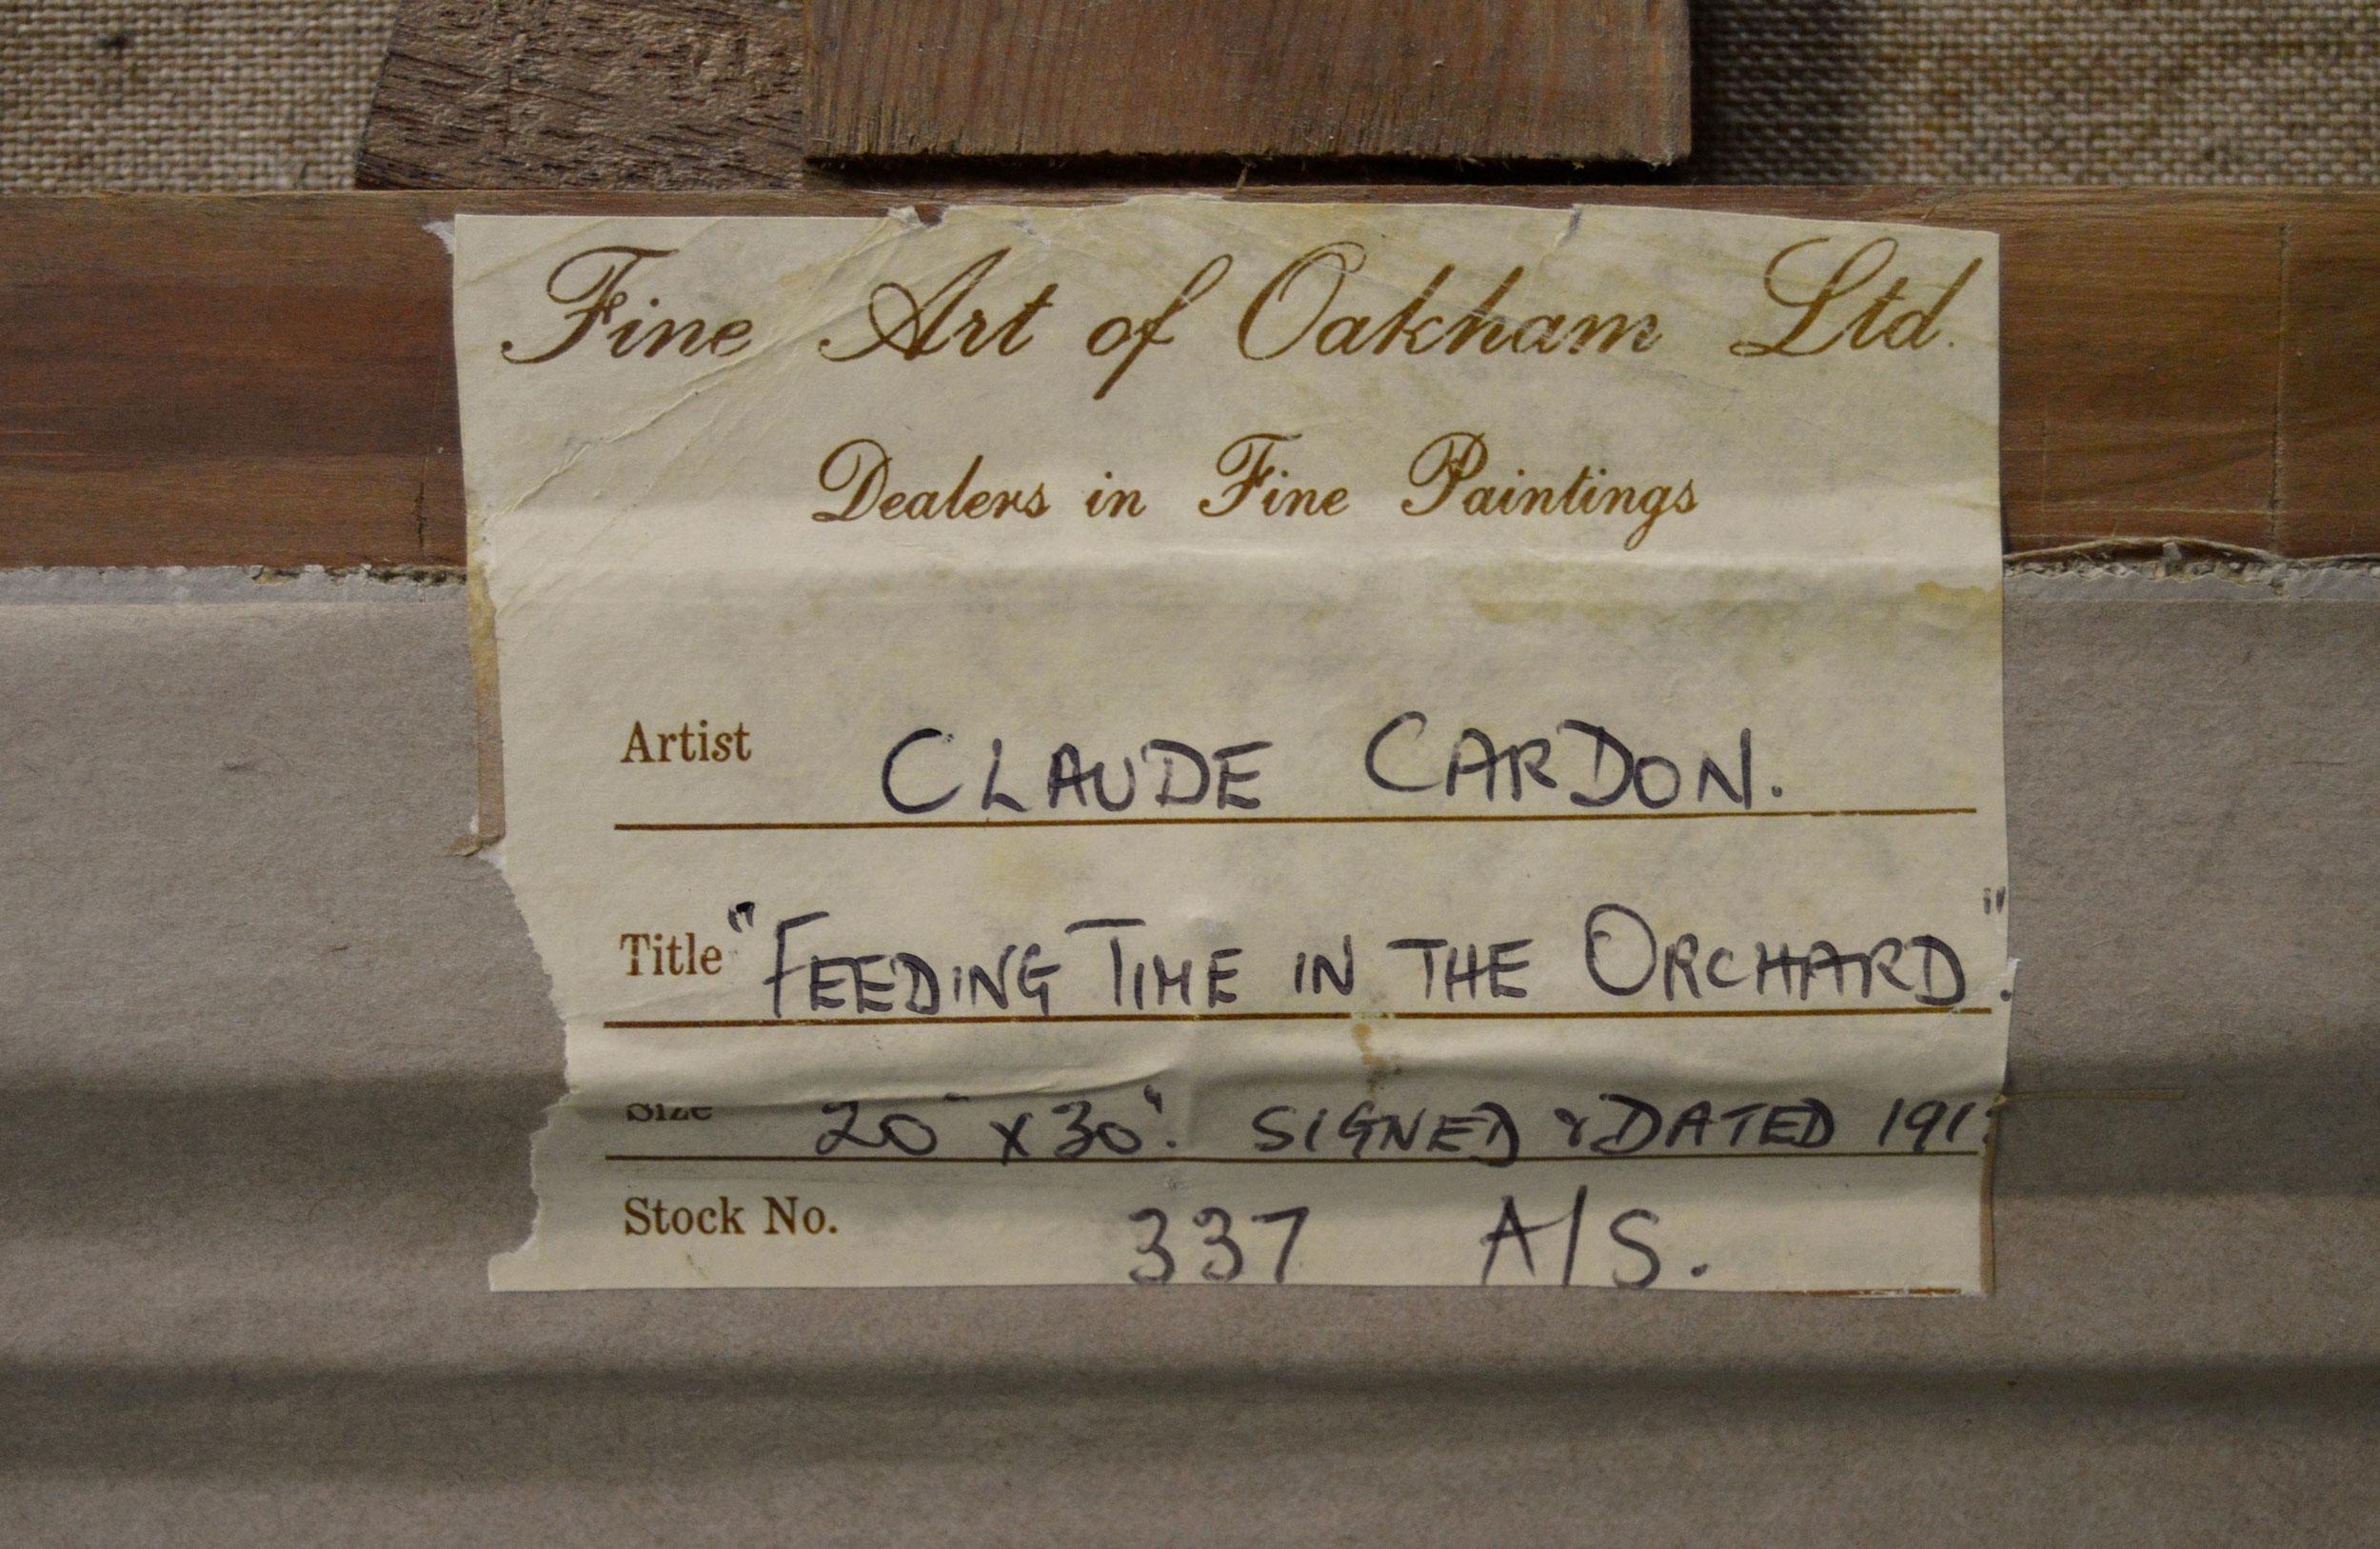 Fine Art of Oakham Ltd.
Dealers in Fine Paintings
Artist CLAUDE CARDON.
Title "FEEDING TIME IN THE ORCHARD."
Size 20" x 30". SIGNED & DATED
Stock No. 337 A/S.